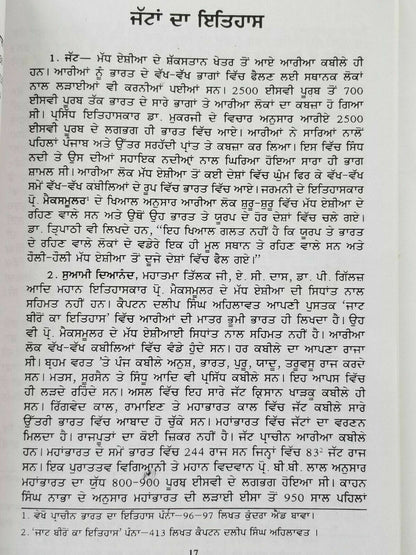 ਜੱਟਾਂ ਦਾ ਇਤਿਹਾਸ
1. ਜੱਟ— ਮੱਧ ਏਸ਼ੀਆ ਦੇ ਸ਼ੱਕਸਤਾਨ ਖੇਤਰ ਤੋਂ ਆਏ ਆਰੀਆ ਕਬੀਲੇ ਹੀ
ਹਨ। ਆਰੀਆਂ ਨੂੰ ਭਾਰਤ ਦੇ ਵੱਖ-ਵੱਖ ਭਾਗਾਂ ਵਿੱਚ ਫੈਲਣ ਲਈ ਸਥਾਨਕ ਲੋਕਾਂ
ਨਾਲ ਲੜਾਈਆਂ ਵੀ ਕਰਨੀਆਂ ਪਈਆਂ ਸਨ। 2500 ਈਸਵੀ ਪੂਰਬ ਤੋਂ 700
ਈਸਵੀ ਪੂਰਬ ਤੱਕ ਭਾਰਤ ਦੇ ਸਾਰੇ ਭਾਗਾਂ ਤੇ ਆਰੀਆ ਲੋਕਾਂ ਦਾ ਕਬਜ਼ਾ ਹੋ ਗਿਆ
ਸੀ। ਪ੍ਰਸਿੱਧ ਇਤਿਹਾਸਕਾਰ ਡਾ. ਮੁਕਰਜੀ ਦੇ ਵਿਚਾਰ ਅਨੁਸਾਰ ਆਰੀਏ 2500
ਈਸਵੀ ਪੂਰਬ ਦੇ ਲਗਭਗ ਹੀ ਭਾਰਤ ਵਿੱਚ ਆਏ। ਆਰੀਆਂ ਨੇ ਸਾਰਿਆਂ ਨਾਲੋਂ
ਪਹਿਲਾਂ ਪੰਜਾਬ ਅਤੇ ਉੱਤਰ ਸਰਹੱਦੀ ਪ੍ਰਾਂਤ ਤੇ ਕਬਜ਼ਾ ਕਰ ਲਿਆ। ਇਸ ਵਿੱਚ ਸਿੰਧ
ਨਦੀ ਤੇ ਉਸ ਦੀਆਂ ਸਹਾਇਕ ਨਦੀਆਂ ਨਾਲ ਘਿਰਿਆ ਹੋਇਆ ਸਾਰਾ ਹੀ ਭਾਗ
ਸ਼ਾਮਲ ਸੀ। ਆਰੀਆ ਲੋਕ ਮੱਧ ਏਸ਼ੀਆ ਤੋਂ ਕਈ ਦੇਸ਼ਾਂ ਵਿੱਚ ਘੁੰਮ ਫਿਰ ਕੇ ਵੱਖ-ਵੱਖ
ਸਮੇਂ ਵੱਖ-ਵੱਖ ਕਬੀਲਿਆਂ ਦੇ ਰੂਪ ਵਿੱਚ ਭਾਰਤ ਵਿੱਚ ਆਏ। ਜਰਮਨੀ ਦੇ ਇਤਿਹਾਸਕਾਰ
ਪ੍ਰੋ. ਮੈਕਸਮੂਲਰ' ਦੇ ਖਿਆਲ ਅਨੁਸਾਰ ਆਰੀਆ ਲੋਕ ਸ਼ੁਰੂ-ਸ਼ੁਰੂ ਵਿੱਚ ਮੱਧ ਏਸ਼ੀਆ ਦੇ
ਰਹਿਣ ਵਾਲੇ ਸਨ ਅਤੇ ਉਥੋਂ ਉਹ ਭਾਰਤ ਤੇ ਯੂਰਪ ਦੇ ਹੋਰ ਦੇਸ਼ਾਂ ਵਿੱਚ ਚਲੇ ਗਏ।
ਡਾ. ਤ੍ਰਿਪਾਠੀ ਵੀ ਲਿਖਦੇ ਹਨ, “ਇਹ ਖਿਆਲ ਗਲਤ ਨਹੀਂ ਹੈ ਕਿ ਯੂਰਪ ਤੇ ਭਾਰਤ
ਦੇ ਰਹਿਣ ਵਾਲੇ ਲੋਕਾਂ ਦੇ ਵਡੇਰੇ ਇਕ ਹੀ ਮੂਲ ਸਥਾਨ ਤੇ ਰਹਿਣ ਵਾਲੇ ਸਨ ਅਤੇ
ਹੌਲੀ-ਹੌਲੀ ਮੱਧ ਏਸ਼ੀਆ ਤੋਂ ਦੂਜੇ ਦੇਸ਼ਾਂ ਵਿੱਚ ਫੈਲ ਗਏ।”
2. ਸੁਆਮੀ ਦਿਆਨੰਦ, ਮਹਾਤਮਾ ਤਿੱਲਕ ਜੀ, ਏ. ਸੀ. ਦਾਸ, ਡਾ. ਪੀ. ਗਿੱਲਜ਼
ਆਦਿ ਮਹਾਨ ਇਤਿਹਾਸਕਾਰ ਪ੍ਰੋ. ਮੈਕਸਮੂਲਰ ਦੇ ਮੱਧ ਏਸ਼ੀਆ ਦੀ ਸਿਧਾਂਤ ਨਾਲ
ਸਹਿਮਤ ਨਹੀਂ ਹਨ। ਕੈਪਟਨ ਦਲੀਪ ਸਿੰਘ ਅਹਿਲਾਵਤ ਆਪਣੀ ਪੁਸਤਕ 'ਜਾਟ
ਬੀਰੋਂ ਕਾ ਇਤਿਹਾਸ' ਵਿੱਚ ਆਰੀਆਂ ਦੀ ਮਾਤਰ ਭੂਮੀ ਭਾਰਤ ਹੀ ਲਿਖਦਾ ਹੈ। ਉਹ
ਵੀ ਪ੍ਰੋ. ਮੈਕਸਮੂਲਰ ਦੇ ਮੱਧ ਏਸ਼ੀਆਈ ਸਿਧਾਂਤ ਨਾਲ ਸਹਿਮਤ ਨਹੀਂ ਹੈ। ਆਰੀਆ
ਲੋਕ ਵੱਖ-ਵੱਖ ਕਬੀਲਿਆਂ ਵਿੱਚ ਵੰਡੇ ਹੁੰਦੇ ਸਨ। ਹਰ ਕਬੀਲੇ ਦਾ ਆਪਣਾ ਰਾਜਾ
ਸੀ। ਬ੍ਰਹਮ ਵਰਤ 'ਤੇ ਪੰਜ ਕਬੀਲੇ ਅਨੁਸ, ਭਾਰਤ, ਪੁਰੂ, ਯਾਦੂ, ਤਰੂਵਸੂ ਰਾਜ ਕਰਦੇ
ਸਨ। ਮਤਸ, ਸੂਰਸੈਨ ਤੇ ਸਿੰਧੂ ਆਦਿ ਵੀ ਪ੍ਰਸਿੱਧ ਕਬੀਲੇ ਸਨ। ਇਹ ਆਪਸ ਵਿੱਚ
ਹੀ ਲੜਦੇ ਰਹਿੰਦੇ ਸਨ। ਅਸਲ ਵਿੱਚ ਇਹ ਸਾਰੇ ਜੱਟ ਕ੍ਰਿਸਾਨ ਖਾੜਕੂ ਕਬੀਲੇ ਹੀ
ਸਨ। ਰਿੱਗਵੇਦ ਕਾਲ, ਰਾਮਾਇਣ ਤੇ ਮਹਾਂਭਾਰਤ ਕਾਲ ਵਿੱਚ ਜੱਟ ਕਬੀਲੇ ਸਾਰੇ
ਉੱਤਰੀ ਭਾਰਤ ਵਿੱਚ ਆਬਾਦ ਹੋ ਚੁੱਕੇ ਸਨ। ਮਹਾਂਭਾਰਤ ਵਿੱਚ ਜੱਟਾਂ ਦਾ ਵਰਣਨ
ਮਿਲਦਾ ਹੈ। ਰਾਜਪੂਤਾਂ ਦਾ ਕੋਈ ਜ਼ਿਕਰ ਨਹੀਂ ਹੈ। ਜੱਟ ਪ੍ਰਾਚੀਨ ਆਰੀਆ ਕਬੀਲੇ
ਹਨ। ਮਹਾਂਭਾਰਤ ਦੇ ਸਮੇਂ ਭਾਰਤ ਵਿੱਚ 244 ਰਾਜ ਸਨ ਜਿਨ੍ਹਾਂ ਵਿੱਚੋਂ 83² ਜੱਟ ਰਾਜ
ਸਨ। ਇਕ ਪੁਰਾਤਤਵ ਵਿਗਿਆਨੀ ਤੇ ਮਹਾਨ ਵਿਦਵਾਨ ਪ੍ਰੋ. ਬੀ. ਬੀ. ਲਾਲ ਅਨੁਸਾਰ
ਮਹਾਂਭਾਰਤ ਦਾ ਯੁੱਧ 800-900 ਪੂਰਬ ਈਸਵੀ ਦੇ ਲਗਭਗ ਹੋਇਆ ਸੀ। ਕਾਹਨ
ਸਿੰਘ ਨਾਭਾ ਦੇ ਅਨੁਸਾਰ ਮਹਾਂਭਾਰਤ ਦੀ ਲੜਾਈ ਈਸਾ ਤੋਂ 950 ਸਾਲ ਪਹਿਲਾਂ
1. ਵੇਖੋ ਪ੍ਰਾਚੀਨ ਭਾਰਤ ਦਾ ਇਤਿਹਾਸ ਪੰਨਾ—96-97 ਲਿਖਤ ਕੁੰਦਰਾ ਐਂਡ ਬਾਵਾ।
2. 'ਜਾਟ ਬੀਰੋਂ ਕਾ ਇਤਿਹਾਸ' ਪੰਨਾ-413 ਲਿਖਤ ਕੈਪਟਨ ਦਲੀਪ ਸਿੰਘ ਅਹਿਲਾਵਤ।
17